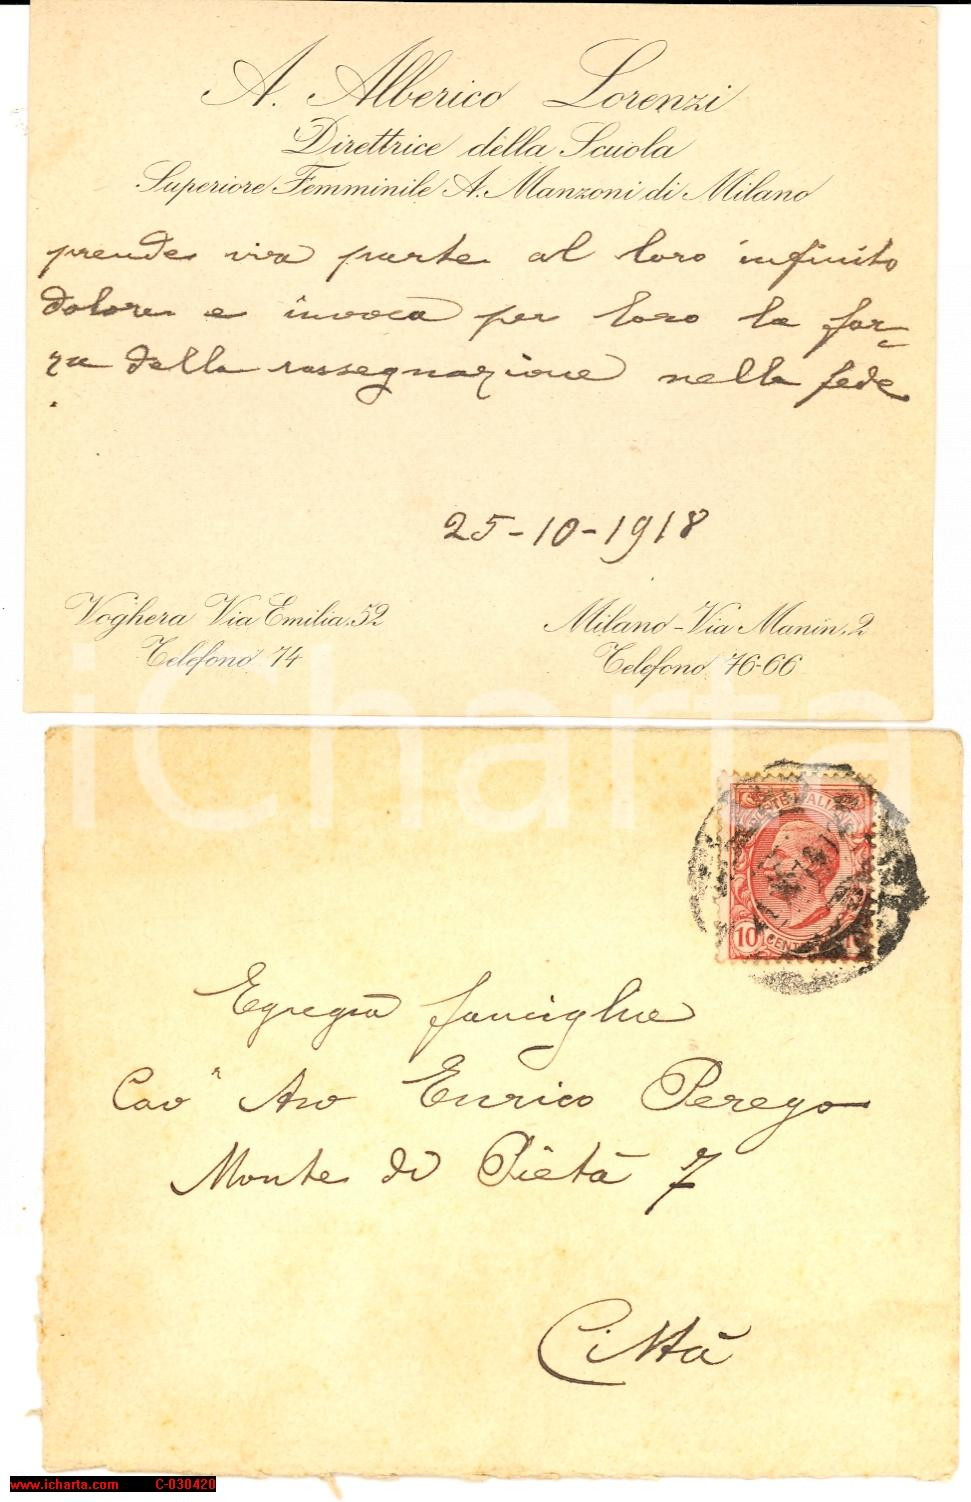 A. Alberico Lorenzi
Direttrice della Scuola
Superiore Femminile A. Manzoni di Milano
prende viva parte al loro infinito
dolore e invoca per loro la for-
za della rassegnazione nella fede
.
25-10-1918
Voghera Via Emilia, 52
Telefono 74
Milano - Via Manin, 2
Telefono 76-66
iCharta
10
CENT
Egregia famiglia
Cav.r Avv Enrico Perego
Monte di Pietà 7
Città
www.icharta.com C-030420